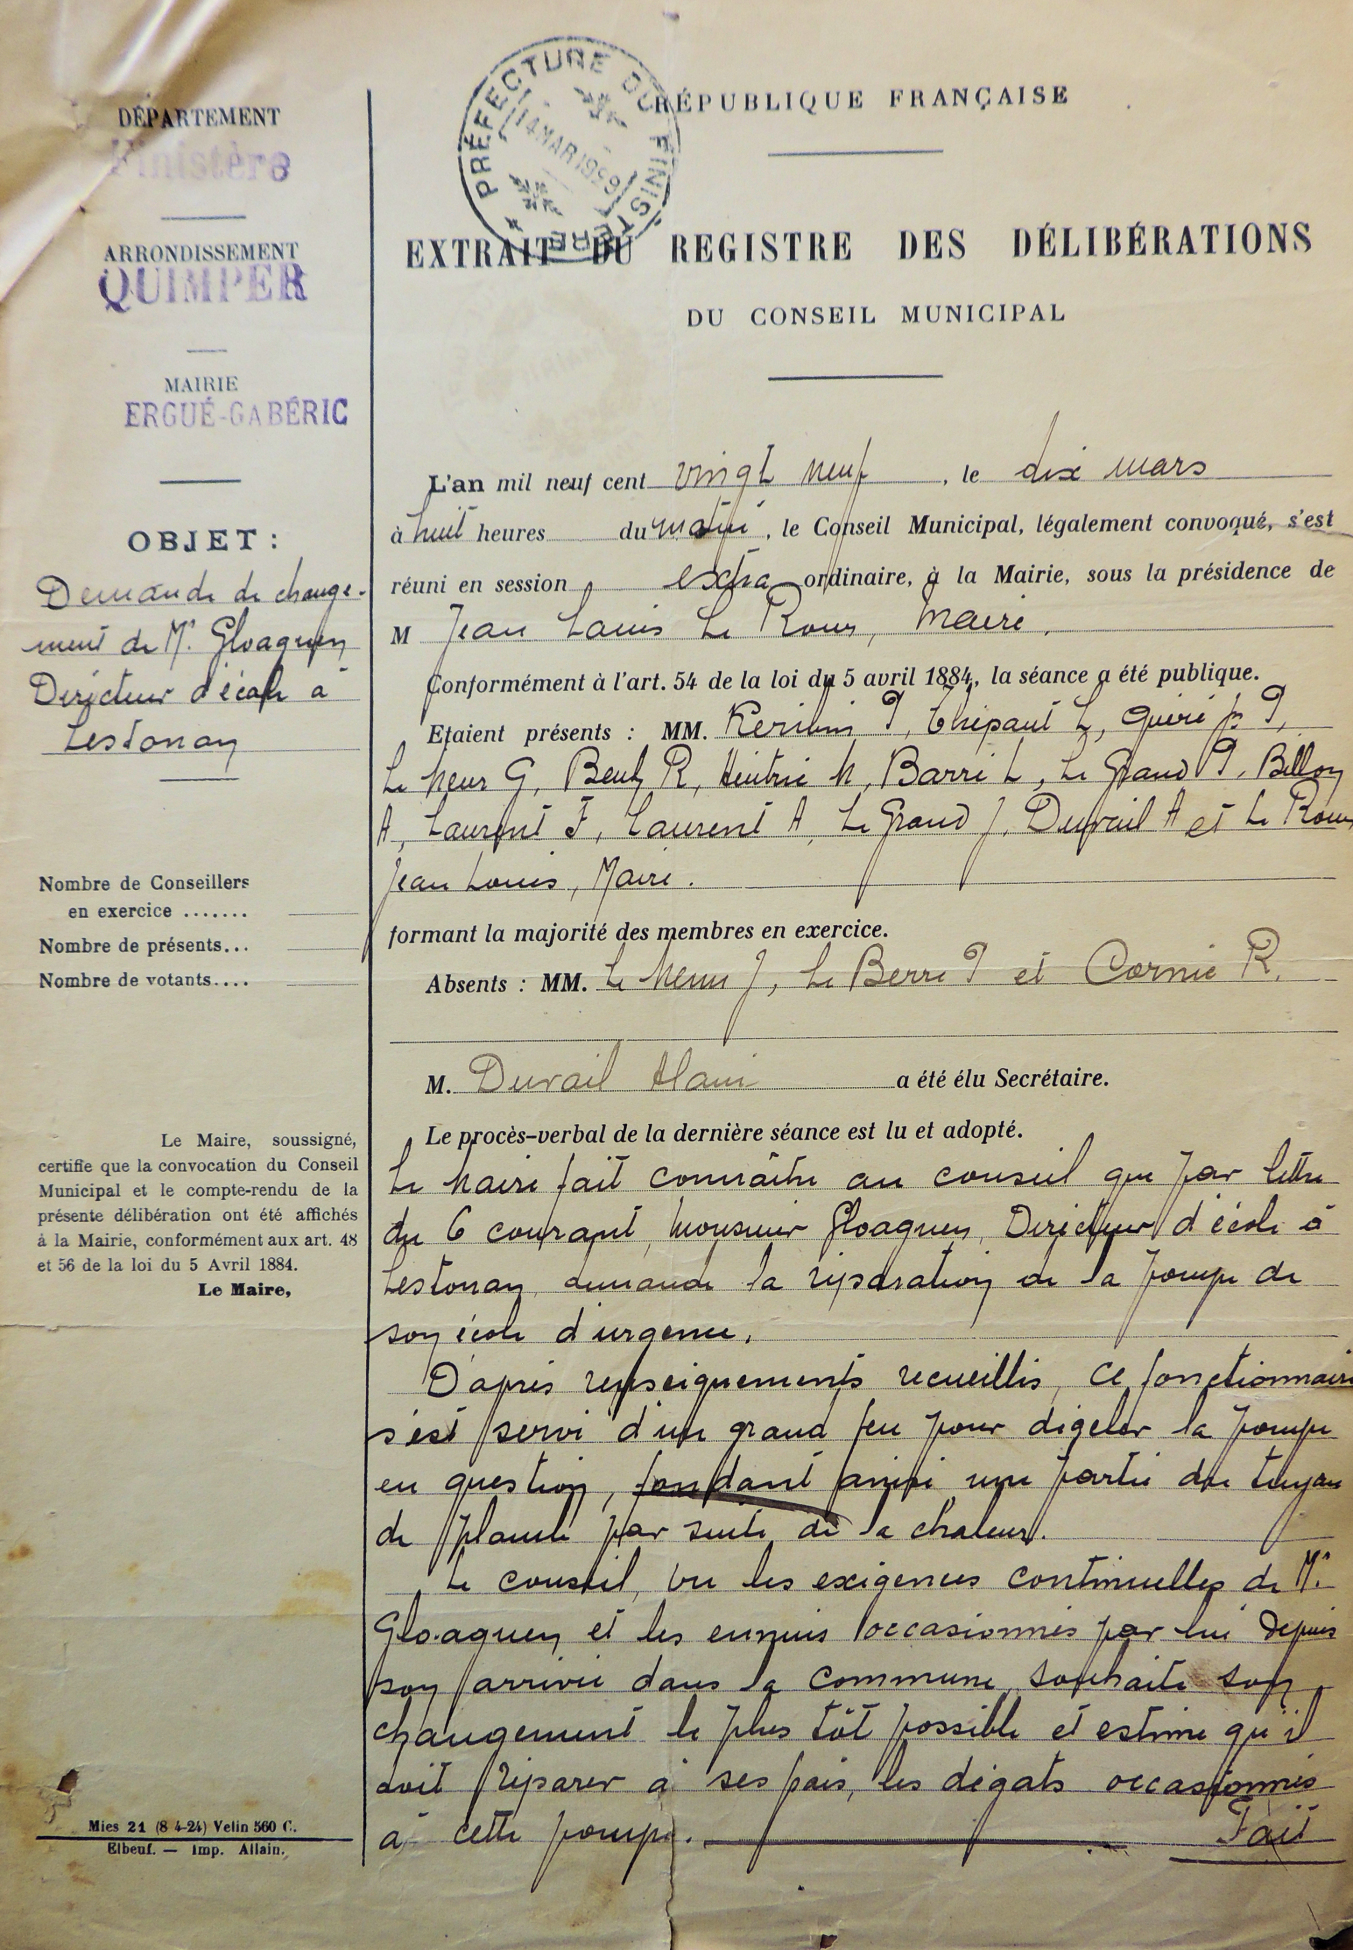 DÉPARTEMENT
Finistère
ARRONDISSEMENT
QUIMPER
MAIRIE
ERGUÉ-GABÉRIC
OBJET :
Demande de change-
ment de Mr. Gloaguen
Directeur d'école à
Lestonan
Nombre de Conseillers
en exercice .......
Nombre de présents...
Nombre de votants....
Le Maire, soussigné,
certifie que la convocation du Conseil
Municipal et le compte-rendu de la
présente délibération ont été affichés
à la Mairie, conformément aux art. 48
et 56 de la loi du 5 Avril 1884.
Le Maire,
Mies 21 (8-4-24) Velin 560 C.
Elbeuf. — Imp. Allain.
PRÉFECTURE DU FINISTÈRE
14 MAR 1929
RÉPUBLIQUE FRANÇAISE
EXTRAIT DU REGISTRE DES DÉLIBÉRATIONS
DU CONSEIL MUNICIPAL
L'an mil neuf cent vingt neuf, le dix mars
à huit heures du matin, le Conseil Municipal, légalement convoqué, s'est
réuni en session extra ordinaire, à la Mairie, sous la présidence de
M Jean Louis Le Roux, Maire.
Conformément à l'art. 54 de la loi du 5 avril 1884, la séance a été publique.
Etaient présents : MM. P, Thépaut L, P,
Le Meur G, R, M, Barré L, Le Grand P, Bellon
A, Laurent F, Laurent A, Le Grand J, Duvail A et Le Roux
Jean Louis, Maire.
formant la majorité des membres en exercice.
Absents : MM. Le Menn J, Le Berre P et Cornic R.
M. Duvail Alain a été élu Secrétaire.
Le procès-verbal de la dernière séance est lu et adopté.
Le Maire fait connaître au conseil que par lettre
du 6 courant, Monsieur Gloaguen, Directeur d'école à
Lestonan, demande la réparation de la pompe de
son école d'urgence.
D'après renseignements recueillis, ce fonctionnaire
s'est servi d'un grand feu pour dégeler la pompe
en question, fondant ainsi une partie du tuyau
de plomb par suite de la chaleur.
Le conseil, vu les exigences continuelles de Mr.
Gloaguen et les ennuis occasionnés par lui depuis
son arrivée dans la commune, souhaite son
changement le plus tôt possible et estime qu'il
doit réparer à ses frais, les dégats occasionnés
à cette pompe. Fait